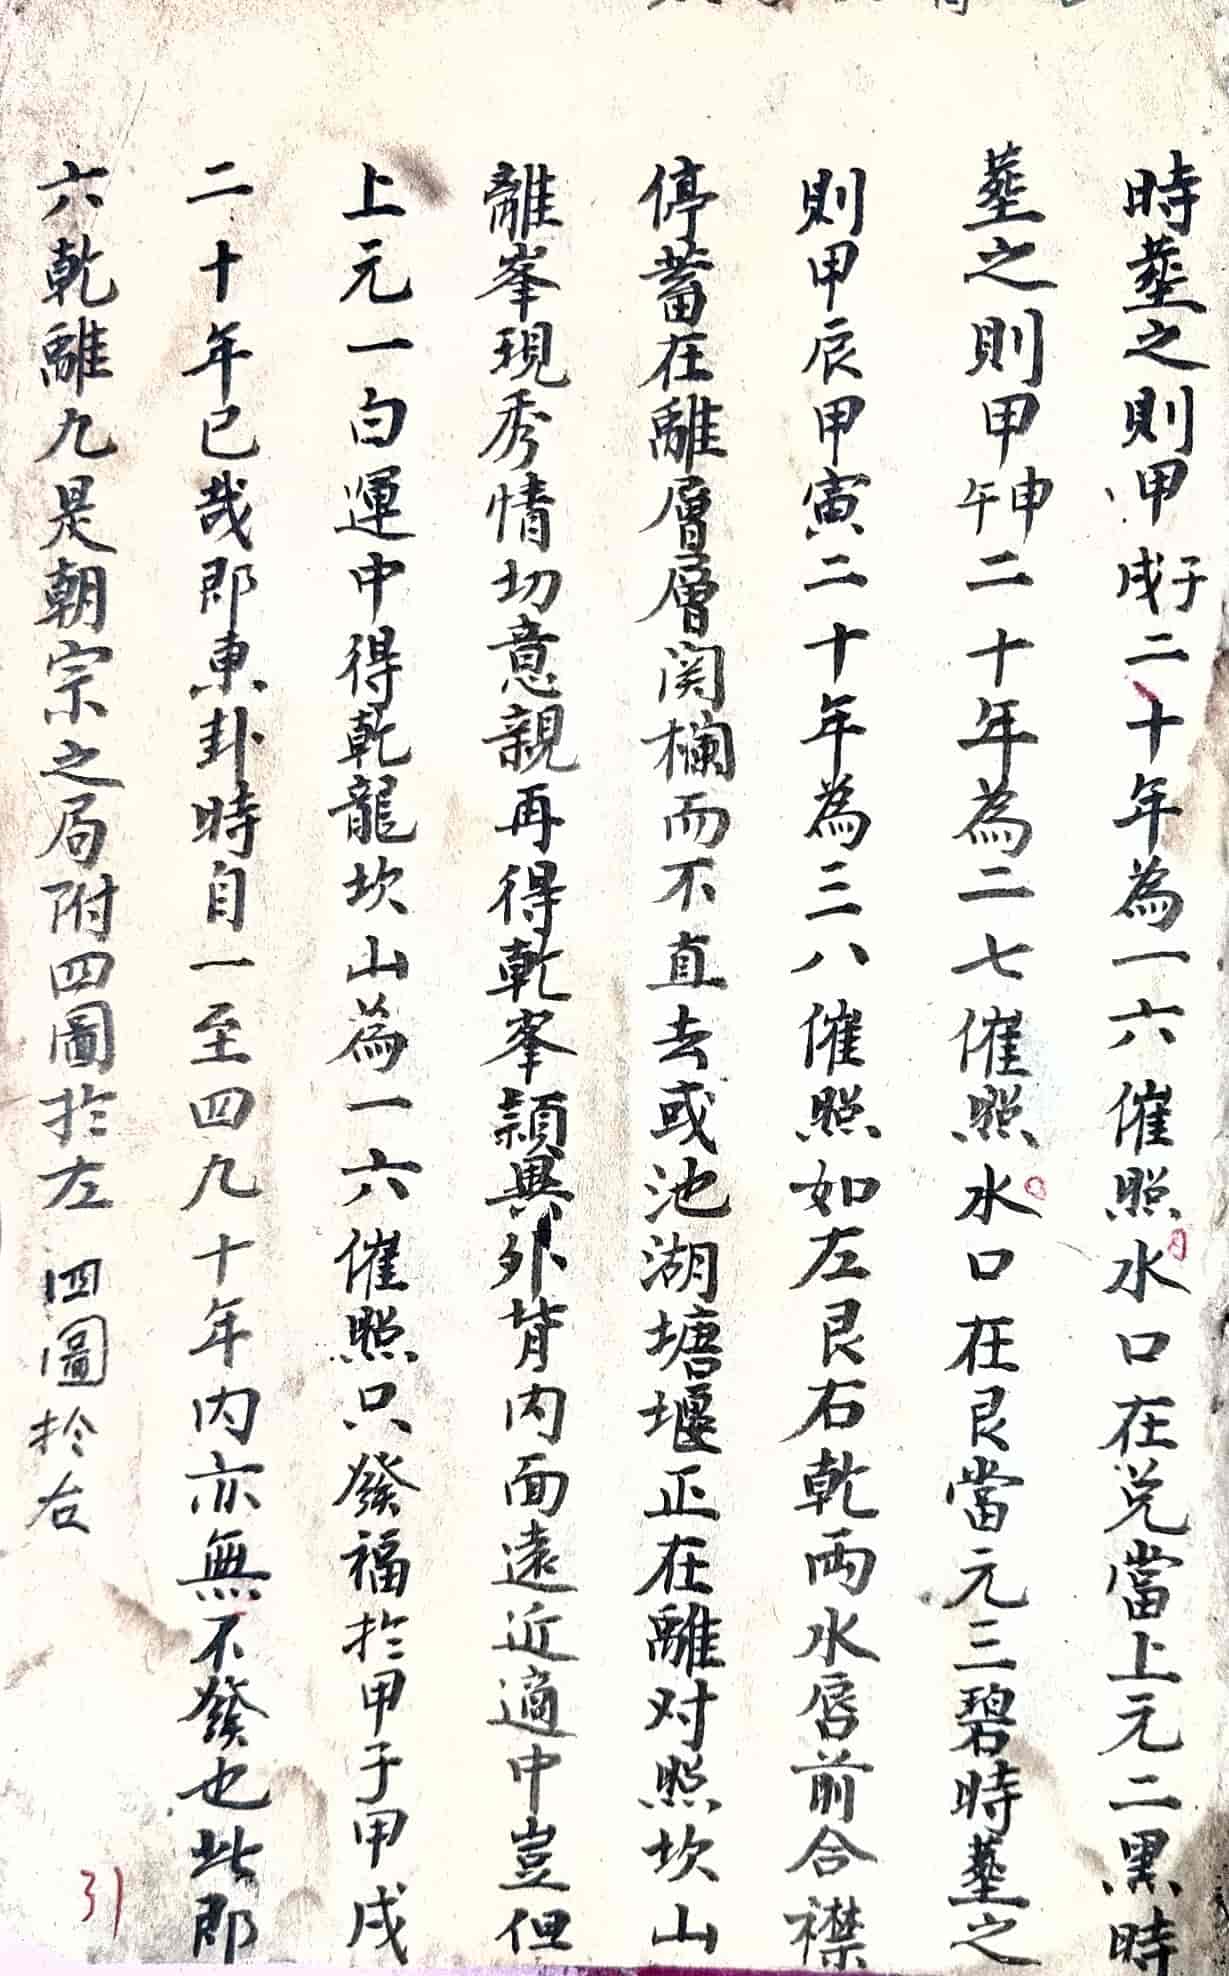 時塟之則甲子戌二十年為一六催照水口在兌當上元二黑時
塟之則甲申午二十年為二七催照水口在艮當元三碧時塟之
則甲辰甲寅二十年為三八催照如左艮右乾兩水唇前合襟
停蓄在離層層関欄而不直去或池湖塘堰正在離对照坎山
離峯現秀情切意親再得乾峯頴異外背内面遠近適中豈但
上元一白運中得乾龍坎山為一六催照只發福於甲子甲戌
二十年已哉即東卦時自一至四九十年内亦無不發也此即
六乾離九是朝宗之局附四圖於左 四圖於右
31